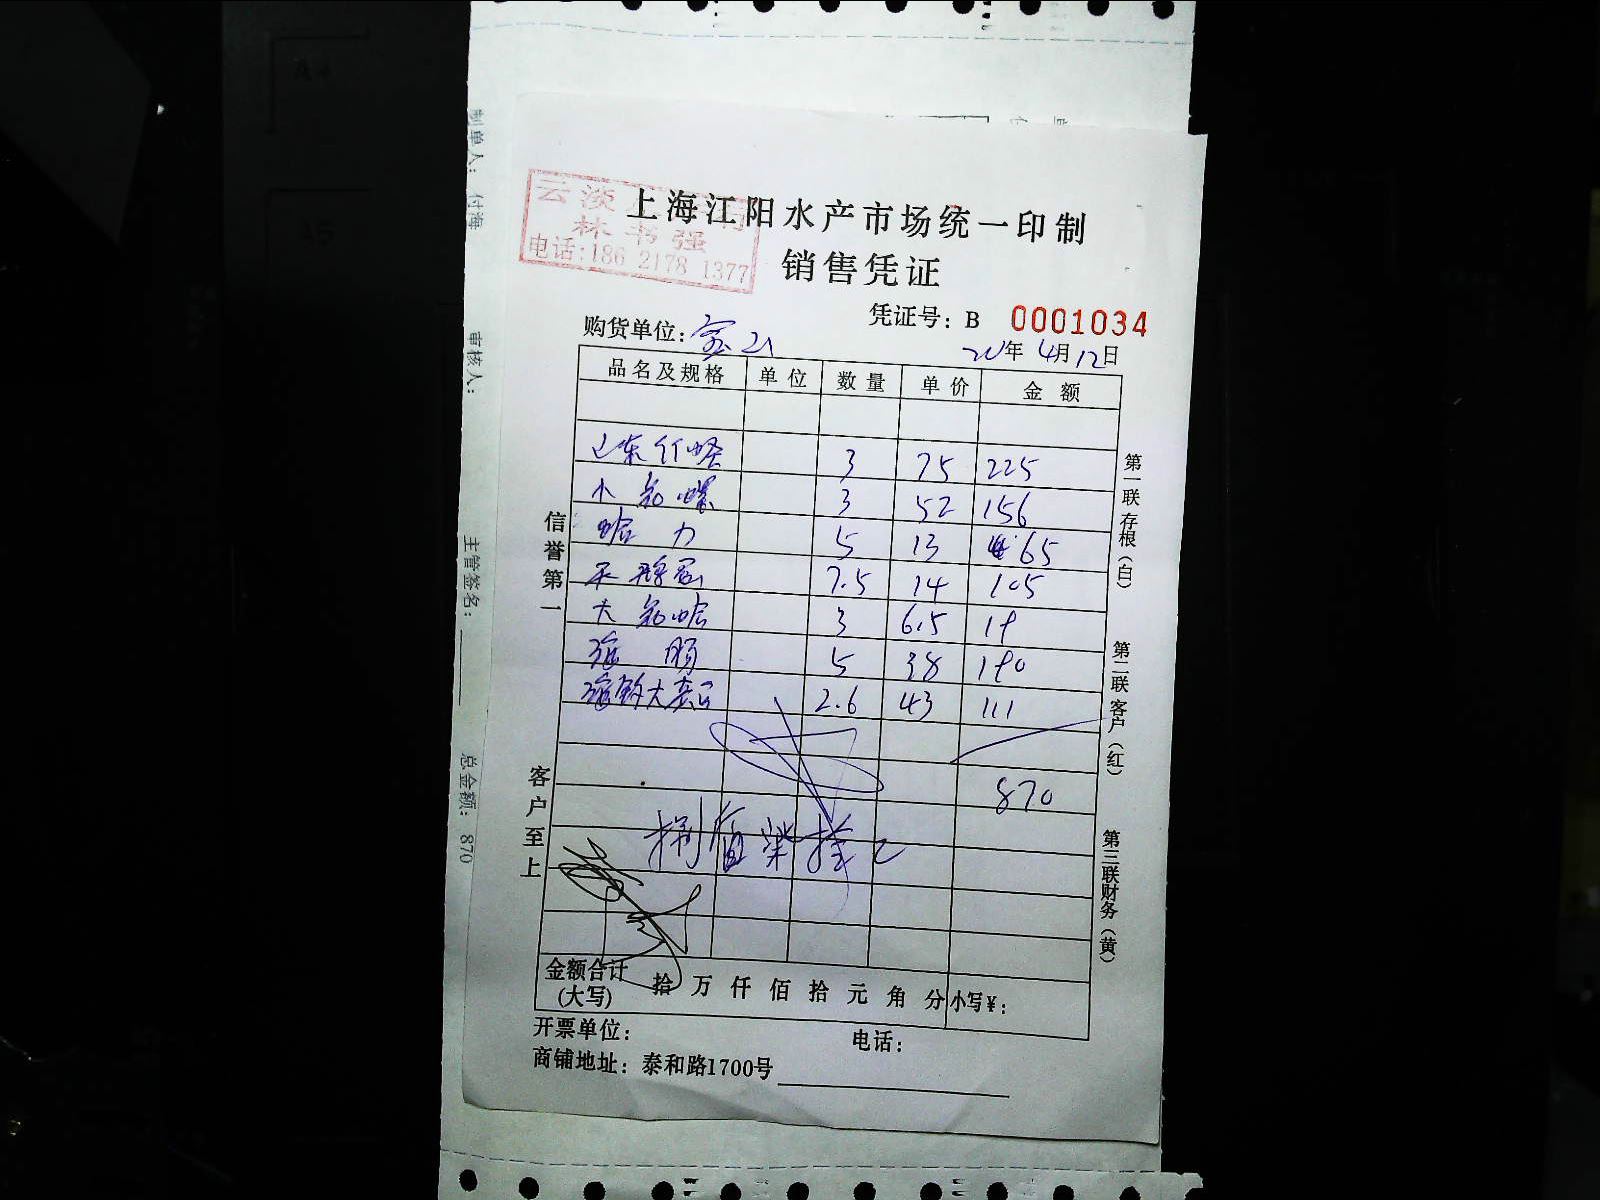 制单人： 付海
审核人：
主管签名：
总金额： 870
云淡
林书强
电话:186 2178 1377
上海江阳水产市场统一印制
销售凭证
凭证号：B 0001034
购货单位：宝山
年 4月12日
品名及规格 单位 数量 单价 金额
3 75 225
小 螺 3 52 156
哈 力 5 13 65
7.5 14 105
大 哈 3 6.5 19
海 肠 5 38 190
2.6 43 111
870
捌佰柒拾元
金额合计(大写) 拾 万 仟 佰 拾 元 角 分 小写¥：
开票单位： 电话：
商铺地址：泰和路1700号
信誉第一
客户至上
第一联 存根（白）
第二联 客户（红）
第三联 财务（黄）